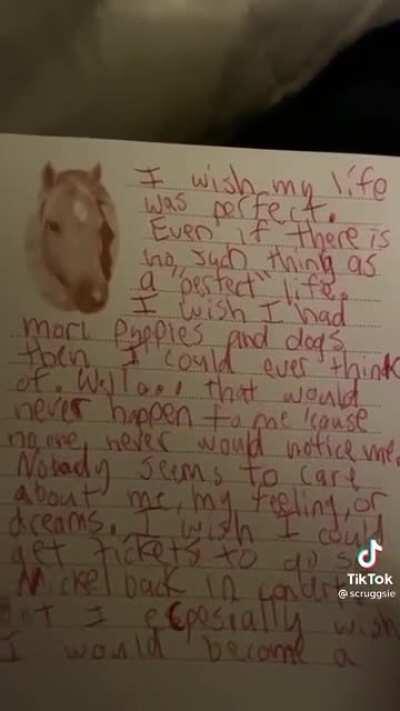 I wish my life
was perfect.
Even if there is
no "such thing as
a "perfect" life.
I wish I had
more puppies and dogs
then I could ever think
of. Well... that would
never happen to me 'cause
no one never would notice me.
Nobady seems to care
about me, my feeling, or
dreams. I wish I could
get tickets to go s
Nickelback in
I especially wish
I would become a
TikTok
@scruggsie